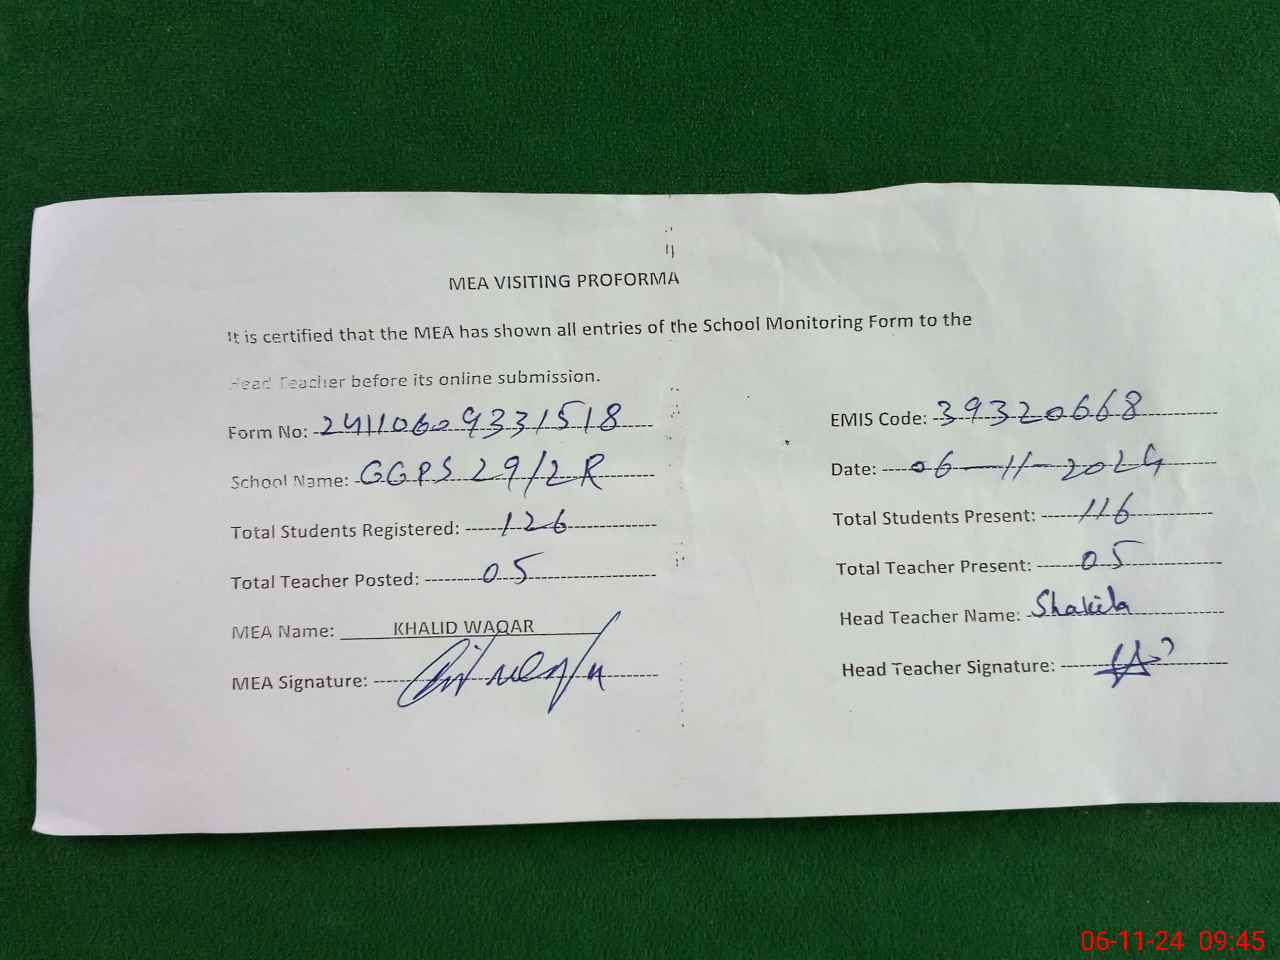 MEA VISITING PROFORMA
It is certified that the MEA has shown all entries of the School Monitoring Form to the
Head Teacher before its online submission.
Form No: 24110609331518 EMIS Code: 39320668
School Name: GGPS 29/2R Date: 06-11-2024
Total Students Registered: 126 Total Students Present: 116
Total Teacher Posted: 05 Total Teacher Present: 05
MEA Name: KHALID WAQAR Head Teacher Name: Shakila
MEA Signature: Head Teacher Signature:
06-11-24 09:45